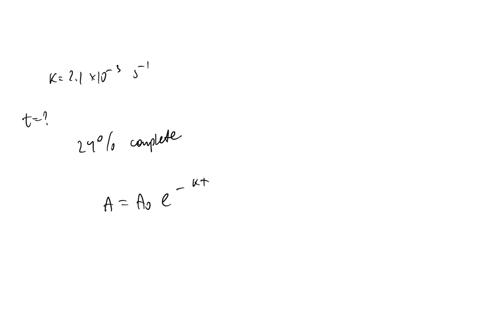 K = 2.1 × 10⁻³ s⁻¹
t = ?
24% complete
A = A₀ e^{-kt}